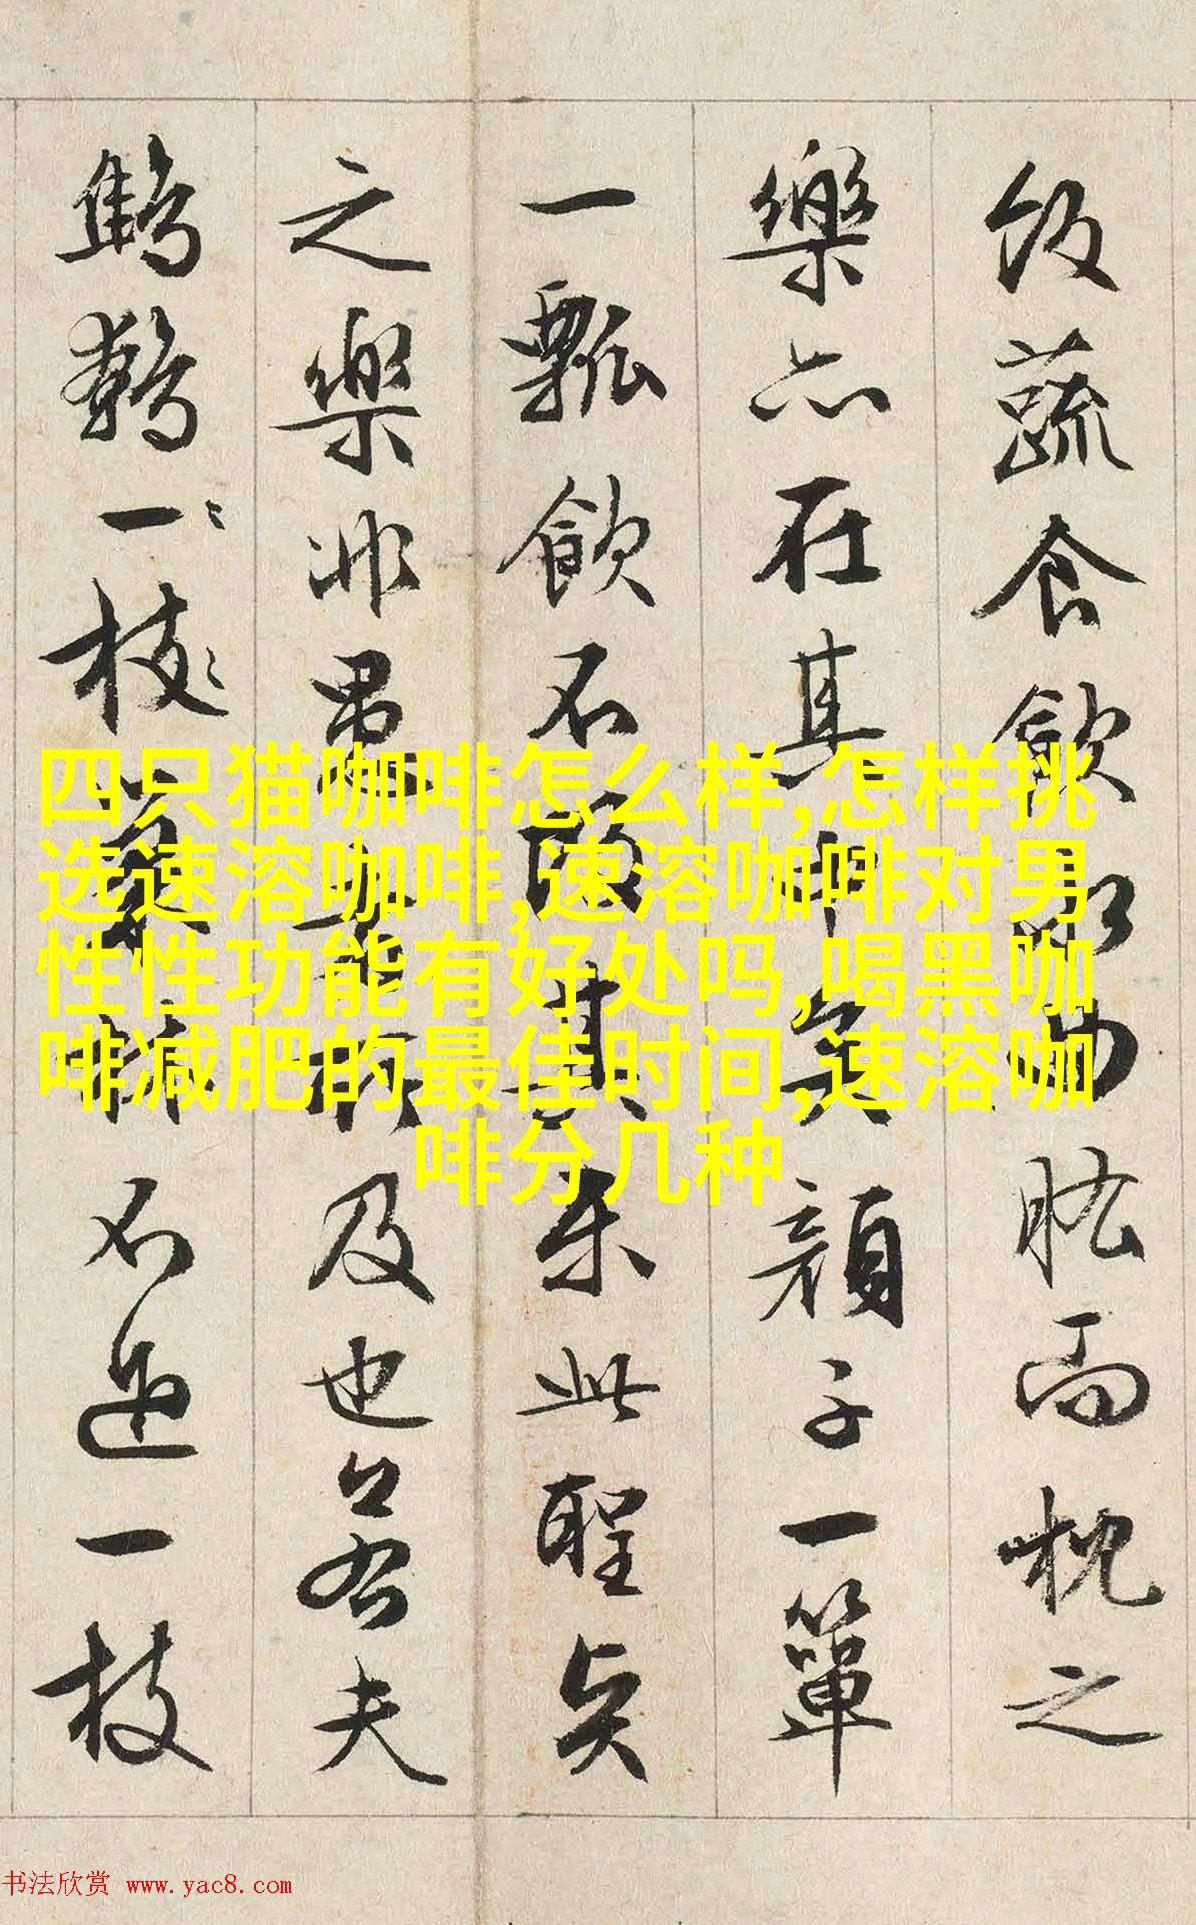 飯蔬食飲水曲肱而枕之
樂亦在其中矣顏子一簞
一瓢飲不改其樂此聖賢
之樂非愚者所及也若夫
鷦鷯一枝巢林不過一枝
四只猫咖啡怎么样,怎样挑
选速溶咖啡,速溶咖啡对男
性性功能有好处吗,喝黑咖
啡减肥的最佳时间,速溶咖
啡分几种
书法欣赏 www.yac8.com